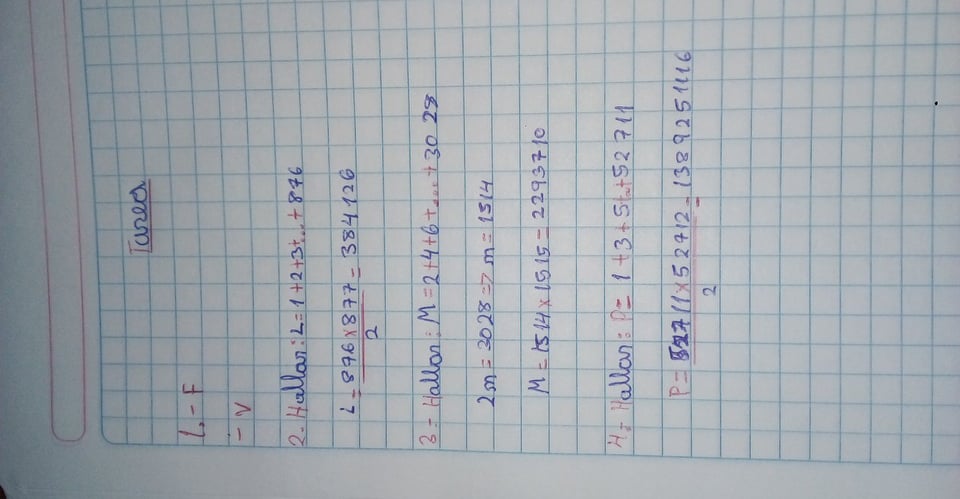 Tarea
1.- F
- V
2.- Hallar: L=1+2+3+...+876
L=876x877=384126
2
3- Hallar: M=2+4+6+....+3028
2m=3028=>m=1514
M=1514x1515=2293710
4- Hallar: P= 1+3+5+...+52711
P=52711x52712=1389251116
2